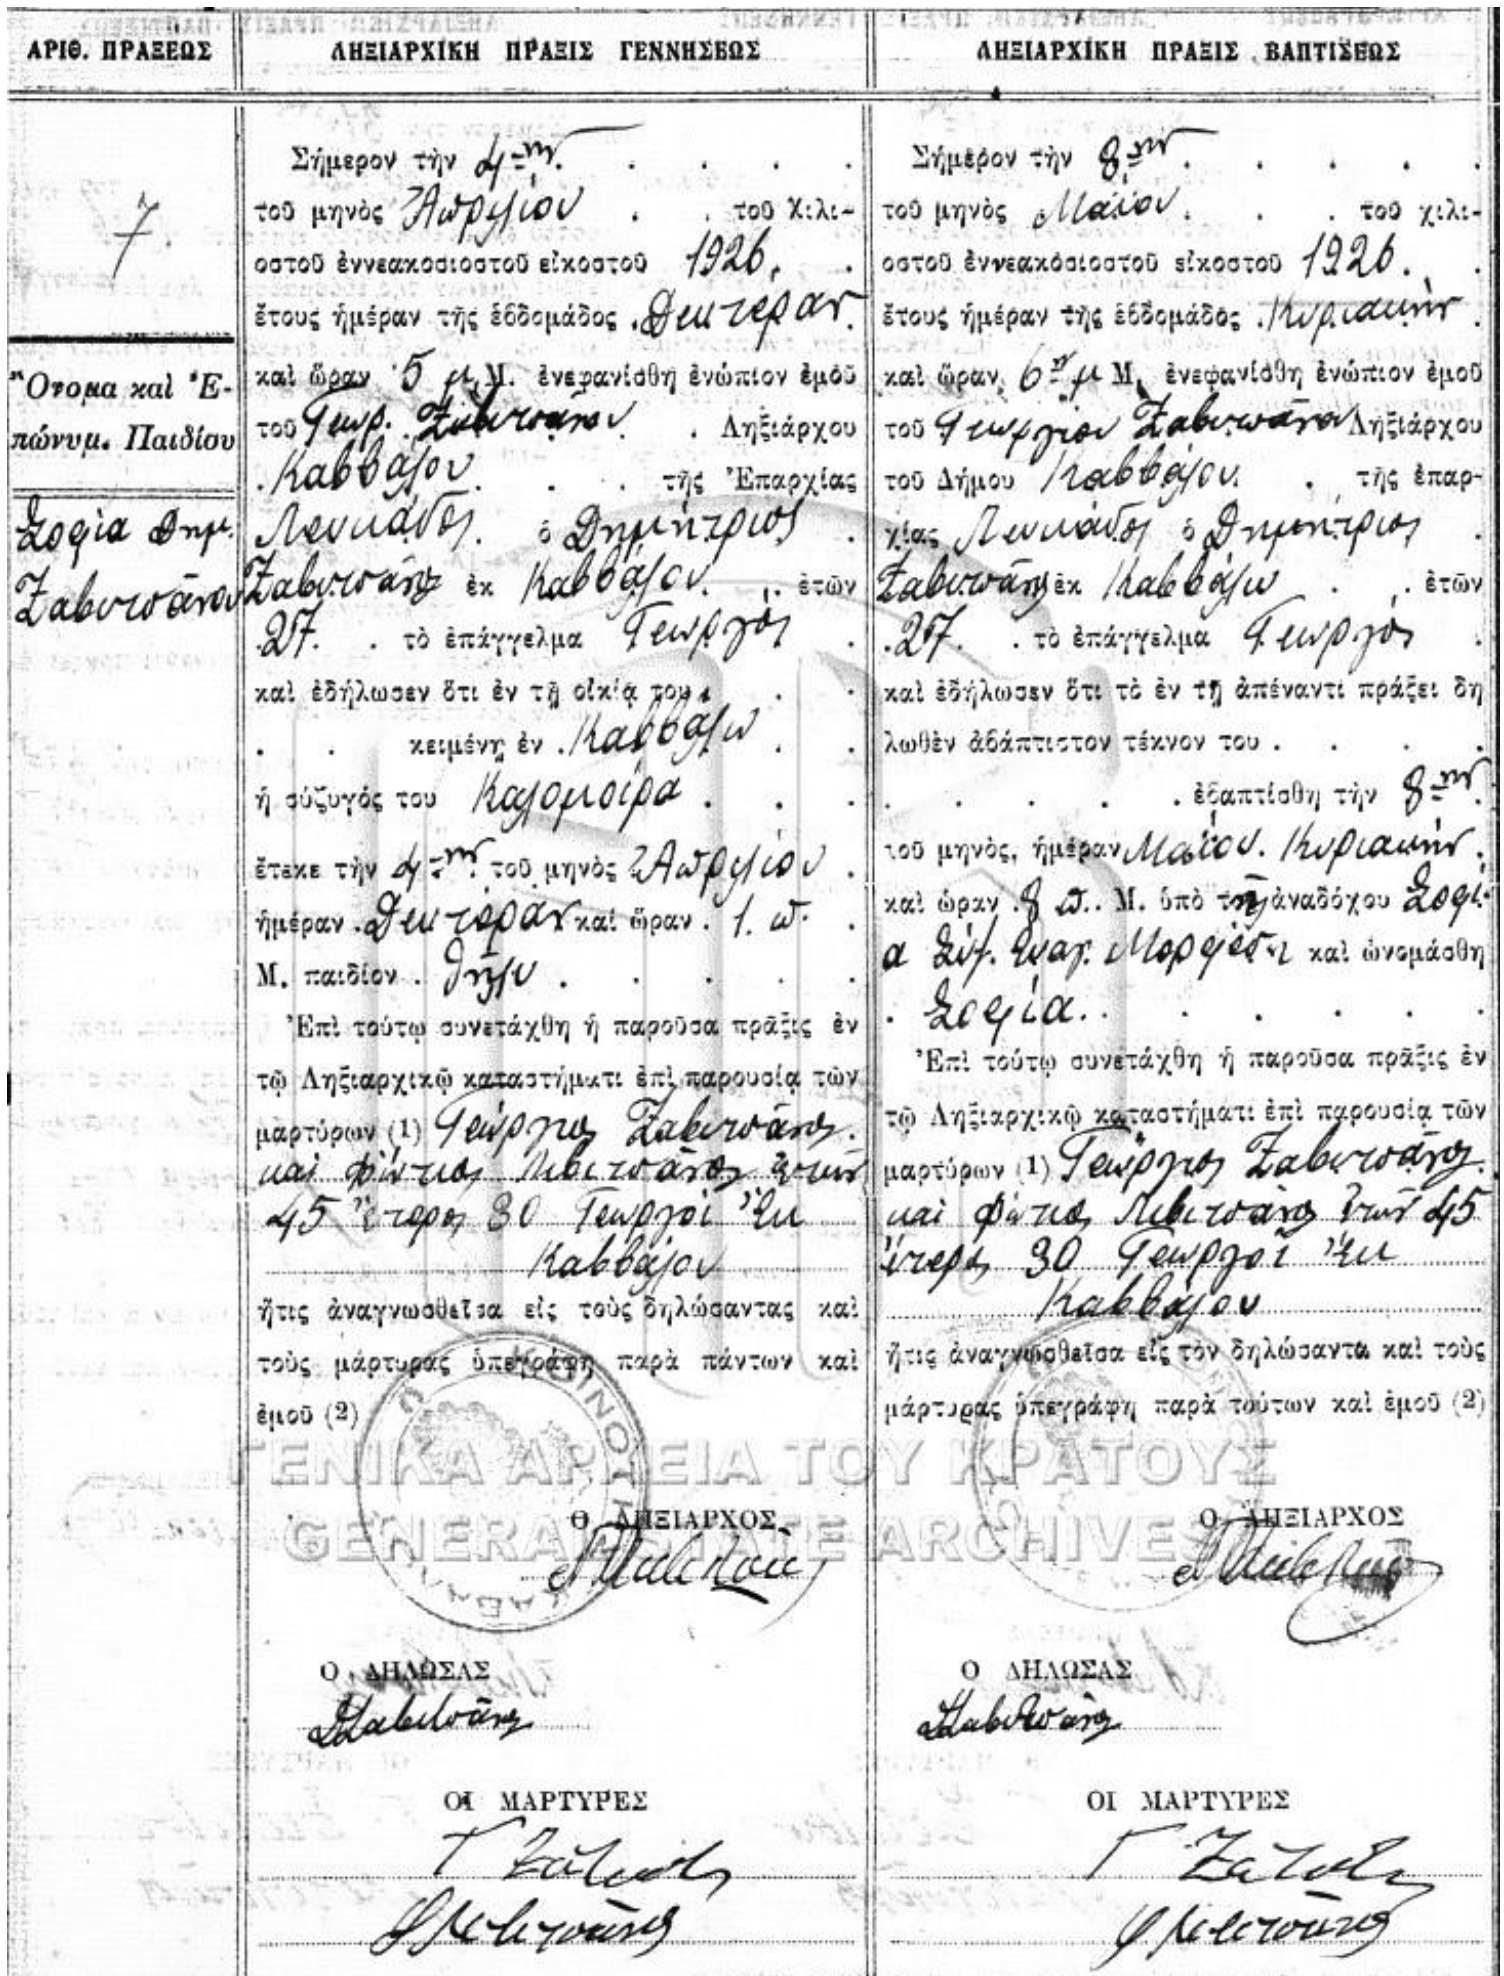 ΑΡΙΘ. ΠΡΑΞΕΩΣ
7
Ὄνομα καὶ Ἐ-
πώνυμ. Παιδίου
Σοφία Δημ.
Ζαβιτσάνου
ΛΗΞΙΑΡΧΙΚΗ ΠΡΑΞΙΣ ΓΕΝΝΗΣΕΩΣ
Σήμερον τὴν 4ην
τοῦ μηνὸς Ἀπριλίου τοῦ χιλι-
οστοῦ ἐννεακοσιοστοῦ εἰκοστοῦ 1926.
ἔτους ἡμέραν τῆς ἑβδομάδος Δευτέραν
καὶ ὥραν 5 μ. Μ. ἐνεφανίσθη ἐνώπιον ἐμοῦ
τοῦ Γεωρ. Ζαβιτσάνου Ληξιάρχου
Καββάλου τῆς Ἐπαρχίας
Λευκάδος ὁ Δημήτριος
Ζαβιτσάνος ἐκ Καββάλου ἐτῶν
27. τὸ ἐπάγγελμα Γεωργός
καὶ ἐδήλωσεν ὅτι ἐν τῇ οἰκίᾳ του
κειμένῃ ἐν Καββάλῳ
ἡ σύζυγός του Καλομοίρα
ἔτεκε τὴν 4ην τοῦ μηνὸς Ἀπριλίου
ἡμέραν Δευτέραν καὶ ὥραν 1. π.
Μ. παιδίον θῆλυ
Ἐπὶ τούτῳ συνετάχθη ἡ παροῦσα πρᾶξις ἐν
τῷ Ληξιαρχικῷ καταστήματι ἐπὶ παρουσίᾳ τῶν
μαρτύρων (1) Γεώργιος Ζαβιτσάνος
καὶ Φώτιος Λιβιτσάνος ἐτῶν
45 ἕτερος 30 Γεωργοὶ Ἐκ
Καββάλου
ἥτις ἀναγνωσθεῖσα εἰς τοὺς δηλώσαντας καὶ
τοὺς μάρτυρας ὑπεγράφη παρὰ πάντων καὶ
ἐμοῦ (2)
Ο ΛΗΞΙΑΡΧΟΣ
Ο ΔΗΛΩΣΑΣ
ΔΖαβιτσάνος
ΟΙ ΜΑΡΤΥΡΕΣ
ΛΗΞΙΑΡΧΙΚΗ ΠΡΑΞΙΣ ΒΑΠΤΙΣΕΩΣ
Σήμερον τὴν 8ην
τοῦ μηνὸς Μαΐου τοῦ χιλι-
οστοῦ ἐννεακοσιοστοῦ εἰκοστοῦ 1926.
ἔτους ἡμέραν τῆς ἑβδομάδος Κυριακήν
καὶ ὥραν 6ην μ Μ. ἐνεφανίσθη ἐνώπιον ἐμοῦ
τοῦ Γεωργίου Ζαβιτσάνου Ληξιάρχου
τοῦ Δήμου Καββάλου τῆς ἐπαρ-
χίας Λευκάδος ὁ Δημήτριος
Ζαβιτσάνος ἐκ Καββάλῳ ἐτῶν
27. τὸ ἐπάγγελμα Γεωργός
καὶ ἐδήλωσεν ὅτι τὸ ἐν τῇ ἀπέναντι πράξει δη
λωθὲν ἀβάπτιστον τέκνον του
ἐβαπτίσθη τὴν 8ην
τοῦ μηνὸς, ἡμέραν Μαΐου. Κυριακήν
καὶ ὥραν 8 π. Μ. ὑπὸ τῆς ἀναδόχου Σοφί-
α Συζ. καὶ ὠνομάσθη
Σοφία
Ἐπὶ τούτῳ συνετάχθη ἡ παροῦσα πρᾶξις ἐν
τῷ Ληξιαρχικῷ καταστήματι ἐπὶ παρουσίᾳ τῶν
μαρτύρων (1) Γεώργιος Ζαβιτσάνος
καὶ Φώτιος Λιβιτσάνος ἐτῶν 45
ἕτερος 30 Γεωργοὶ Ἐκ
Καββάλου
ἥτις ἀναγνωσθεῖσα εἰς τὸν δηλώσαντα καὶ τοὺς
μάρτυρας ὑπεγράφη παρὰ τούτων καὶ ἐμοῦ (2)
Ο ΛΗΞΙΑΡΧΟΣ
Ο ΔΗΛΩΣΑΣ
ΔΖαβιτσάνος
ΟΙ ΜΑΡΤΥΡΕΣ
ΓΕΝΙΚΑ ΑΡΧΕΙΑ ΤΟΥ ΚΡΑΤΟΥΣ
GENERAL STATE ARCHIVES